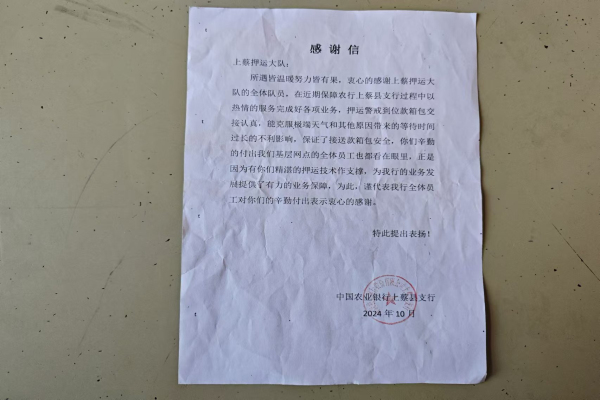 感谢信
上蔡押运大队：
所遇皆温暖努力皆有果，衷心的感谢上蔡押运大
队的全体队员，在近期保障农行上蔡县支行过程中以
热情的服务完成好各项业务，押运警戒到位款箱包交
接认真，能克服极端天气和其他原因带来的等待时间
过长的不利影响，保证了接送款箱包安全，你们辛勤
的付出我们基层网点的全体员工也都看在眼里，正是
因为有你们精湛的押运技术作支撑，为我行的业务发
展提供了有力的业务保障，为此，谨代表我行全体员
工对你们的辛勤付出表示衷心的感谢。
特此提出表扬！
中国农业银行上蔡县支行
2024 年 10 月